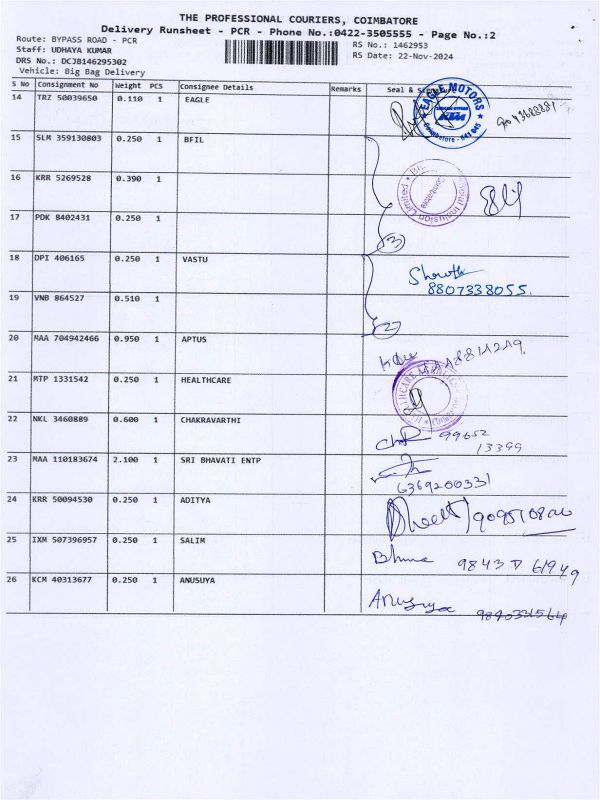 THE PROFESSIONAL COURIERS, COIMBATORE
Delivery Runsheet - PCR - Phone No.:0422-3505555 - Page No.:2
Route: BYPASS ROAD - PCR
RS No.: 1462953
Staff: UDHAYA KUMAR
RS Date: 22-Nov-2024
DRS No.: DCJB146295302
Vehicle: Big Bag Delivery
S No Consignment No Weight PCS Consignee Details Remarks Seal & Signature
14 TRZ 50039650 0.110 1 EAGLE
EAGLE MOTORS
KTM
Coimbatore - 641 045
15 SLM 359130803 0.250 1 BFIL
16 KRR 5269528 0.390 1
Inclusion Limited
17 PDK 8402431 0.250 1
3
18 DPI 406165 0.250 1 VASTU
8807338055
19 VNB 864527 0.510 1
2
20 MAA 704942466 0.950 1 APTUS
21 MTP 1331542 0.250 1 HEALTHCARE
22 NKL 3460889 0.600 1 CHAKRAVARTHI
99652
13399
23 MAA 110183674 2.100 1 SRI BHAVATI ENTP
6369200331
24 KRR 50094530 0.250 1 ADITYA
25 IXM 507396957 0.250 1 SALIM
26 KCM 40313677 0.250 1 ANUSUYA
Anusuya